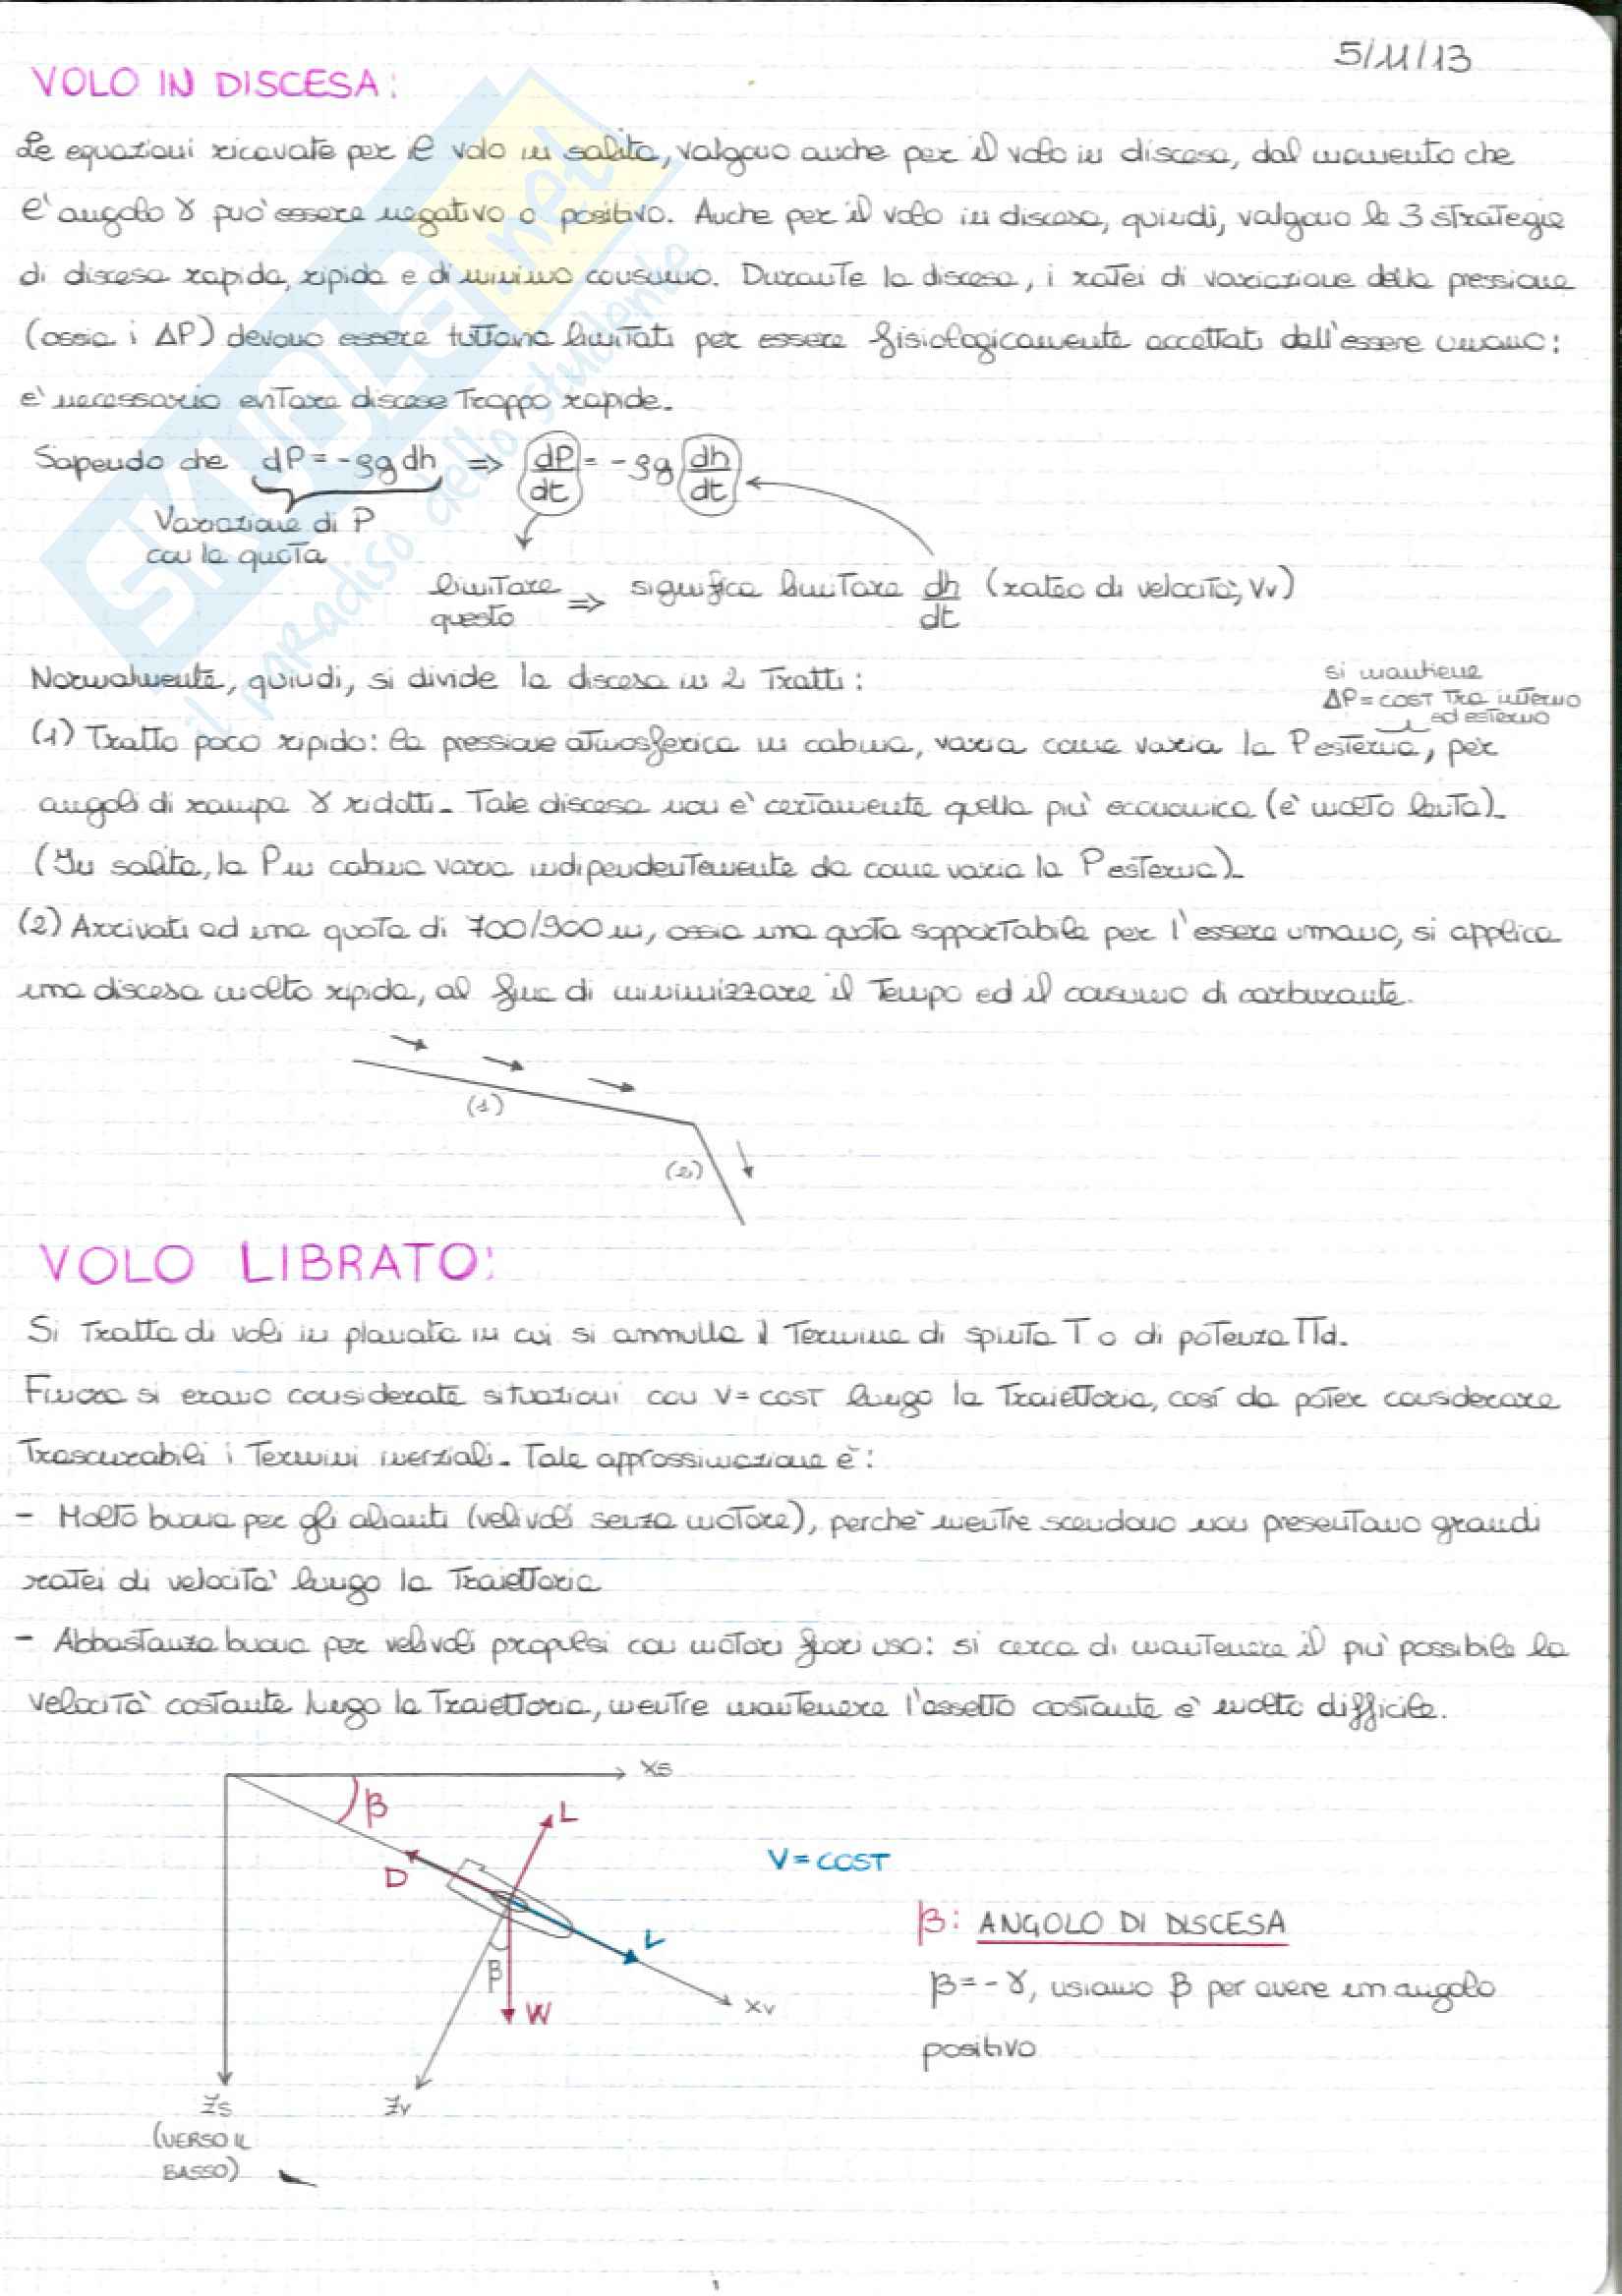 5/11/13
VOLO IN DISCESA:
Le equazioni ricavate per il volo in salita, valgono anche per il volo in discesa, dal momento che
l'angolo γ può essere negativo o positivo. Anche per il volo in discesa, quindi, valgono le 3 strategie
di discesa rapida, ripida e di minimo consumo. Durante la discesa, i ratei di variazione della pressione
(ossia i ΔP) devono essere tuttavia limitati per essere fisiologicamente accettati dall'essere umano:
e' necessario evitare discese troppo rapide.
Sapendo che dP = -ρg dh => dP/dt = -ρg dh/dt
Variazione di P
con la quota
limitare questo => significa limitare dh/dt (rateo di velocità, Vv)
Normalmente, quindi, si divide la discesa in 2 tratti:
si mantiene
ΔP = COST tra interno
ed esterno
(1) Tratto poco ripido: la pressione atmosferica in cabina, varia come varia la P esterna, per
angoli di rampa γ ridotti. Tale discesa non e' certamente quella più economica (e' molto lenta).
(In salita, la P in cabina varia indipendentemente da come varia la P esterna).
(2) Arrivati ad una quota di 700/900 m, ossia una quota sopportabile per l'essere umano, si applica
una discesa molto ripida, al fine di minimizzare il tempo ed il consumo di carburante.
(1)
(2)
VOLO LIBRATO:
Si tratta di voli in planata in cui si annulla il termine di spinta T o di potenza Πd.
Finora si erano considerate situazioni con V = COST lungo la traiettoria, così da poter considerare
trascurabili i termini inerziali. Tale approssimazione è:
- Molto buona per gli alianti (velivoli senza motore), perche' mentre scendono non presentano grandi
ratei di velocita' lungo la traiettoria
- Abbastanza buona per velivoli propulsi con motori fuori uso: si cerca di mantenere il più possibile la
velocità costante lungo la traiettoria, mentre mantenere l'assetto costante e' molto difficile.
xs
β
L
D
V = COST
L
β: ANGOLO DI DISCESA
β
β = -γ, usiamo β per avere un angolo
W
xv
positivo
zs
zv
(VERSO IL
BASSO)
SKUOLA.net
il paradiso dello studente